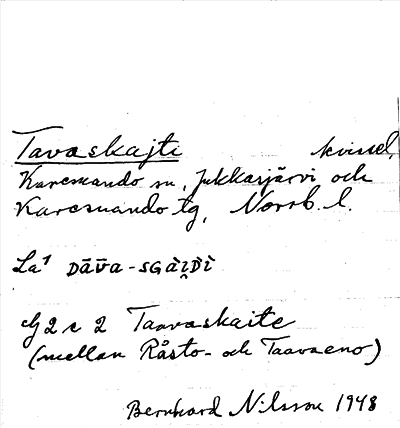 Tavaskajti kvissel,
Karesuando sn, Jukkasjärvi och
Karesuando tg, Norrb. l.
La¹ DāV̄a-SGàI̯Dì
G2c2 Taavaskaite
(mellan Råsto- och Taavaeno)
Bernhard Nilsson 1948